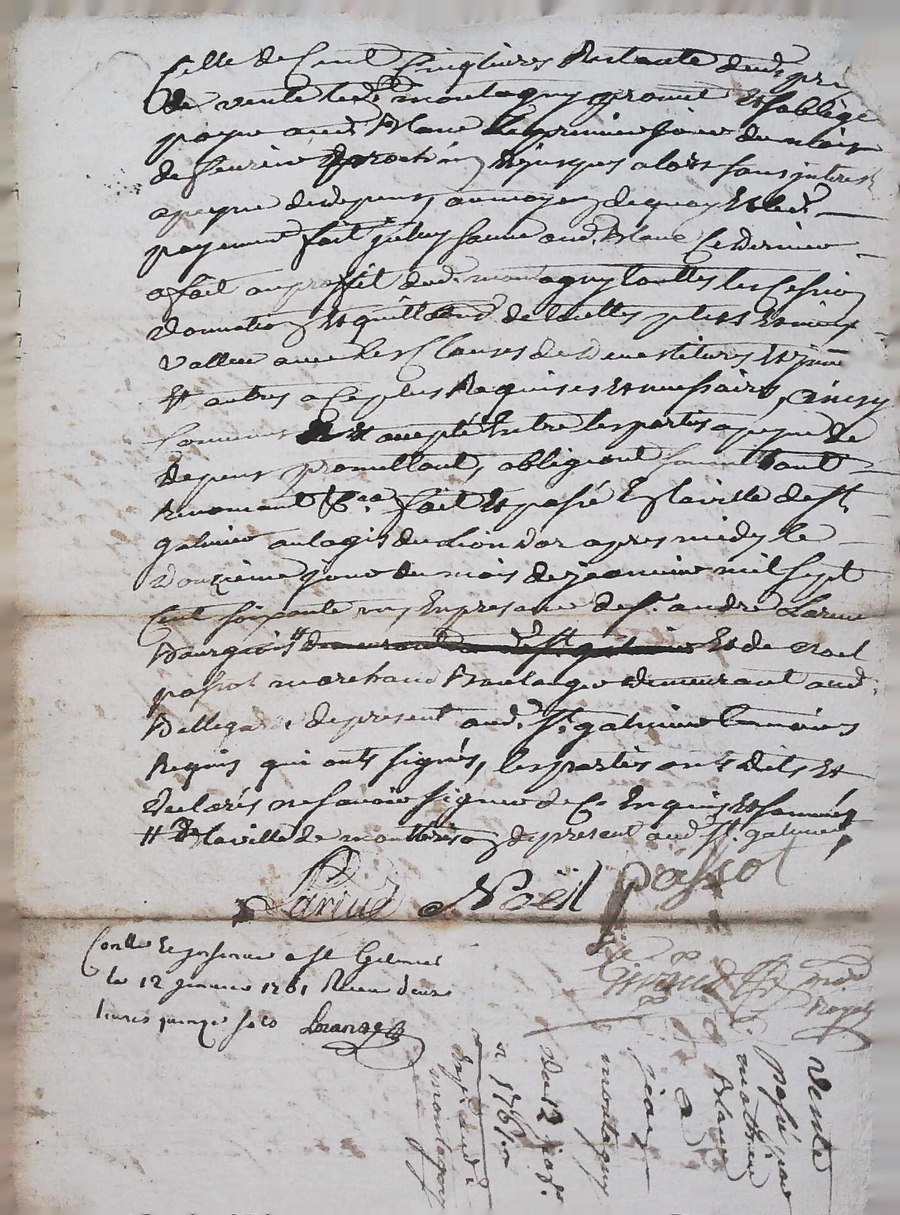 celle de Cent Cinq livres Restante dud. prix
de vente led. montagny promet Et soblige
payer aud. Blanc le premier jour du mois
de feuvrier prochain, Et jusques alors sans interest
a peyne de depens, au moyen de quoy Et led.
payement fait
aud. Blanc Ce dernier
a fait au proffit dud. montagny touttes les Cession
donnation Et quittance de touttes plus Et mieux
vallue avec les Clauses de Devestiture Et
Et autres a Ce plus Requises Et necessaires, Ainsy
Convenu Et accepté Entre les parties a peyne de
depens promettant, obligeant soumettant
Renonçant &ca. fait Et passé En la ville de St
galmier au logis du Lion Dor apres midy le
Douzieme jour du mois de janvier mil sept
Cent soixante un En presence de Sr. andré Larive
Bourgeois # Et de Noel
passot marchand Boulanger demeurant aud.
Bellegarde de present aud. St. galmier temoins
Requis qui onts signés, les parties onts dits Et
declarés ne sçavoir signer de Ce Enquis Et sommés
# de la ville de montbrison de present aud. St. galmier
Larive Noël passot
Giraud
nore
royal
Conllé Et a St Galmier
le 12 janvier 1761 Receu deux
livres quinze sols
vente
passé par
mathieu
Blanc
a
jean
montagny
Du 12 janr.
1761
Exp. aud.
montagny